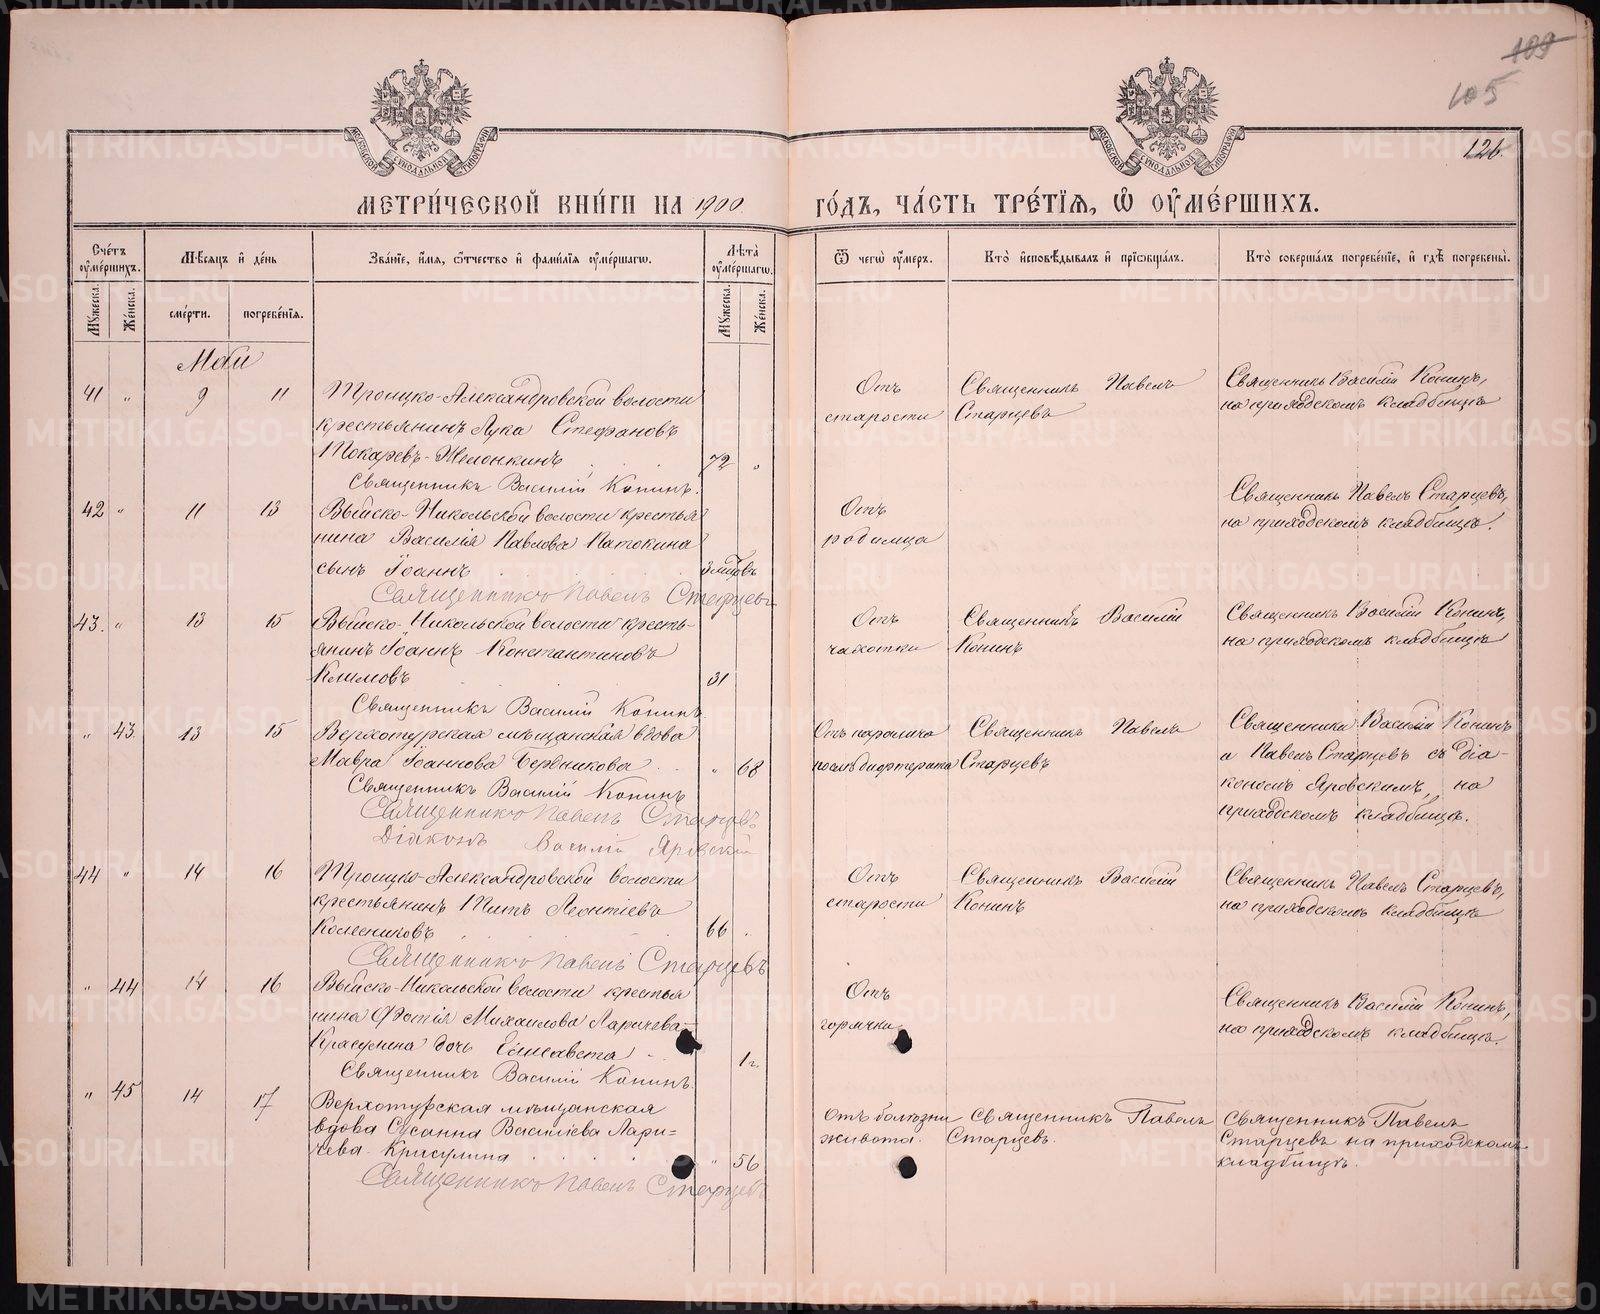 109
105
126.
МОСКОВСКОЙ СѴНОДАЛЬНОЙ ТИПОГРАФІИ
МОСКОВСКОЙ СѴНОДАЛЬНОЙ ТИПОГРАФІИ
МЕТРИ́ЧЕСКОЙ КНИ́ГИ НА 1900. ГО́ДЪ, ЧА́СТЬ ТРЕ́ТІЯ, Ѽ ОУМЕ́РШИХЪ.
Сче́тъ оуме́ршихъ.
Мꙋ́жеска.
Же́нска.
Мѣ́сяцъ и де́нь
сме́рти.
погребе́нія.
Зва́ніе, и́мя, ѻ́тчество и фами́лія оуме́ршагѡ.
Лѣ́та оуме́ршагѡ.
Мꙋ́жеска.
Же́нска.
Ѿ чегѡ̀ оу́меръ.
Кто̀ и҆сповѣ́дывалъ и҆ прїѡбща́лъ.
Кто̀ соверша́лъ погребе́ніе, и҆ гдѣ̀ погребены̀.
Май
41 " 9 11 Троицко-Александровской волости
крестьянинъ Лука Стефановъ
Токаревъ-Желонкинъ 72 "
Священникъ Василій Конинъ.
Отъ
старости
Священникъ Павелъ
Старцевъ
Священникъ Василій Конинъ,
на приходскомъ кладбищѣ
42 " 11 13 Выйско-Никольской волости крестья
нина Василія Павлова Патокина
сынъ Іоаннъ 3 мѣсъ
Священникъ Павелъ Старцевъ
Отъ
родимца
Священникъ Павелъ Старцевъ,
на приходскомъ кладбищѣ.
43. " 13 15 Выйско-Никольской волости кресть-
янинъ Іоаннъ Константиновъ
Климовъ 31
Священникъ Василій Конинъ
Отъ
чахотки
Священникъ Василій
Конинъ
Священникъ Василій Конинъ,
на приходскомъ кладбищѣ
" 43 13 15 Верхотурская мѣщанская вдова
Мавра Іоаннова Бердникова " 68
Священникъ Василій Конинъ
Священникъ Павелъ Старцевъ
Діаконъ Василій Яровскій
Отъ паралича
послѣ дифтерита
Священникъ Павелъ
Старцевъ
Священники Василій Конинъ
и Павелъ Старцевъ съ діа-
кономъ Яровскимъ, на
приходскомъ кладбищѣ.
44 " 14 16 Троицко-Александровской волости
крестьянинъ Титъ Леонтіевъ
Колесниковъ 66 "
Священникъ Павелъ Старцевъ
Отъ
старости
Священникъ Василій
Конинъ
Священникъ Павелъ Старцевъ,
на приходскомъ кладбищѣ
" 44 14 16 Выйско-Никольской волости крестья
нина Фотія Михаилова Ларичева-
Красулина дочь Елисавета 1 г.
Священникъ Василій Конинъ.
Отъ
горячки
Священникъ Василій Конинъ,
на приходскомъ кладбищѣ.
" 45 14 17 Верхотурская мѣщанская
вдова Сусанна Василіева Лари=
чева-Красулина " 56
Священникъ Павелъ Старцевъ
отъ болѣзни
живота.
Священникъ Павелъ
Старцевъ.
Священникъ Павелъ
Старцевъ на приходскомъ
кладбищѣ.
METRIKI.GASO-URAL.RU